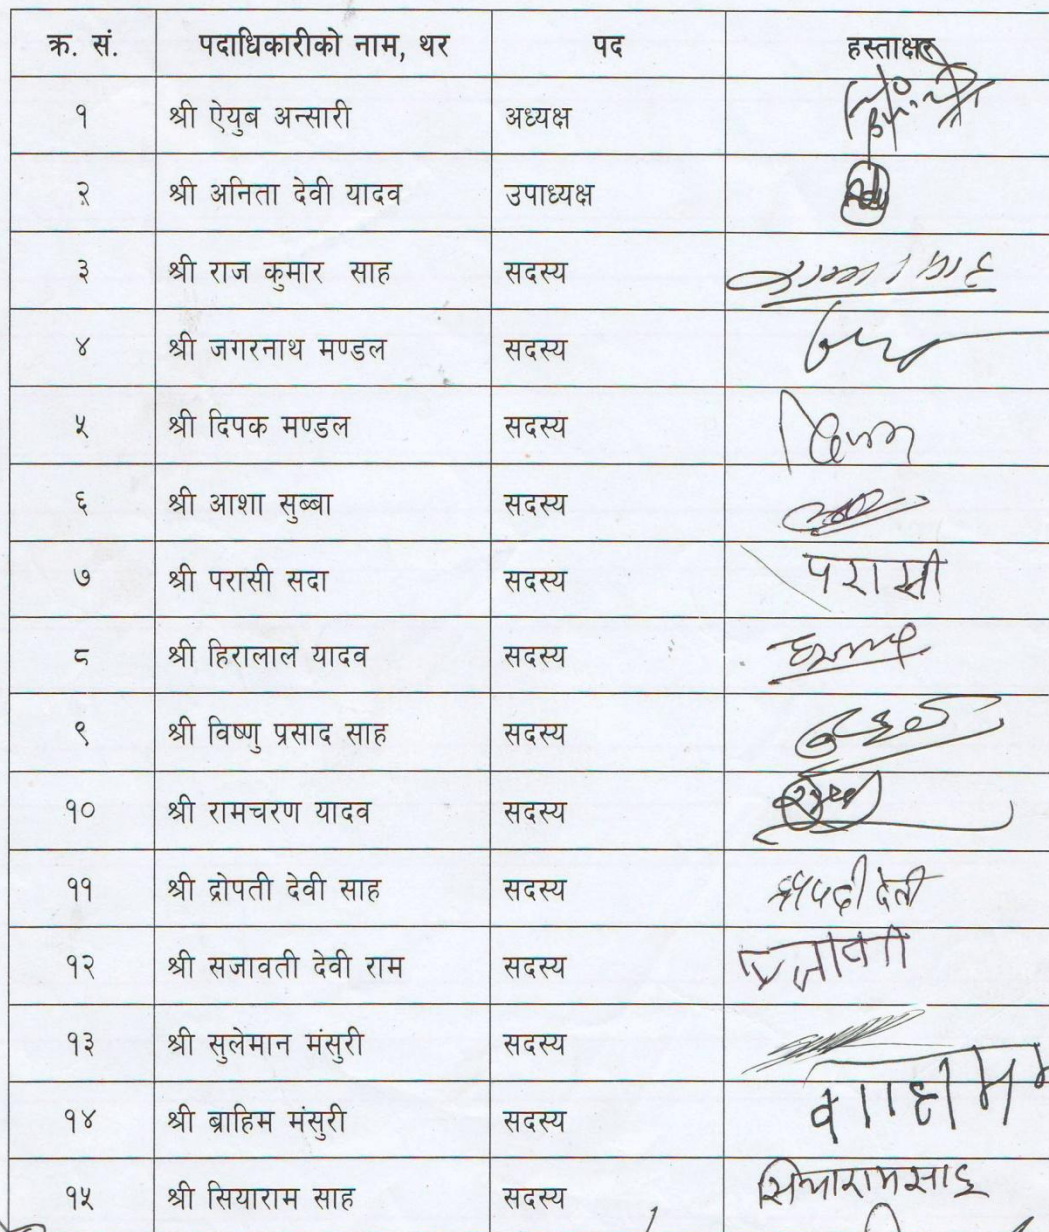 क्र. सं. पदाधिकारीको नाम, थर पद हस्ताक्षर
१ श्री ऐयुब अन्सारी अध्यक्ष
२ श्री अनिता देवी यादव उपाध्यक्ष
३ श्री राज कुमार साह सदस्य
४ श्री जगरनाथ मण्डल सदस्य
५ श्री दिपक मण्डल सदस्य
६ श्री आशा सुब्बा सदस्य
७ श्री परासी सदा सदस्य परासी
८ श्री हिरालाल यादव सदस्य
९ श्री विष्णु प्रसाद साह सदस्य
१० श्री रामचरण यादव सदस्य
११ श्री द्रोपती देवी साह सदस्य
१२ श्री सजावती देवी राम सदस्य
१३ श्री सुलेमान मंसुरी सदस्य
१४ श्री ब्राहिम मंसुरी सदस्य
१५ श्री सियाराम साह सदस्य सियारामसाह